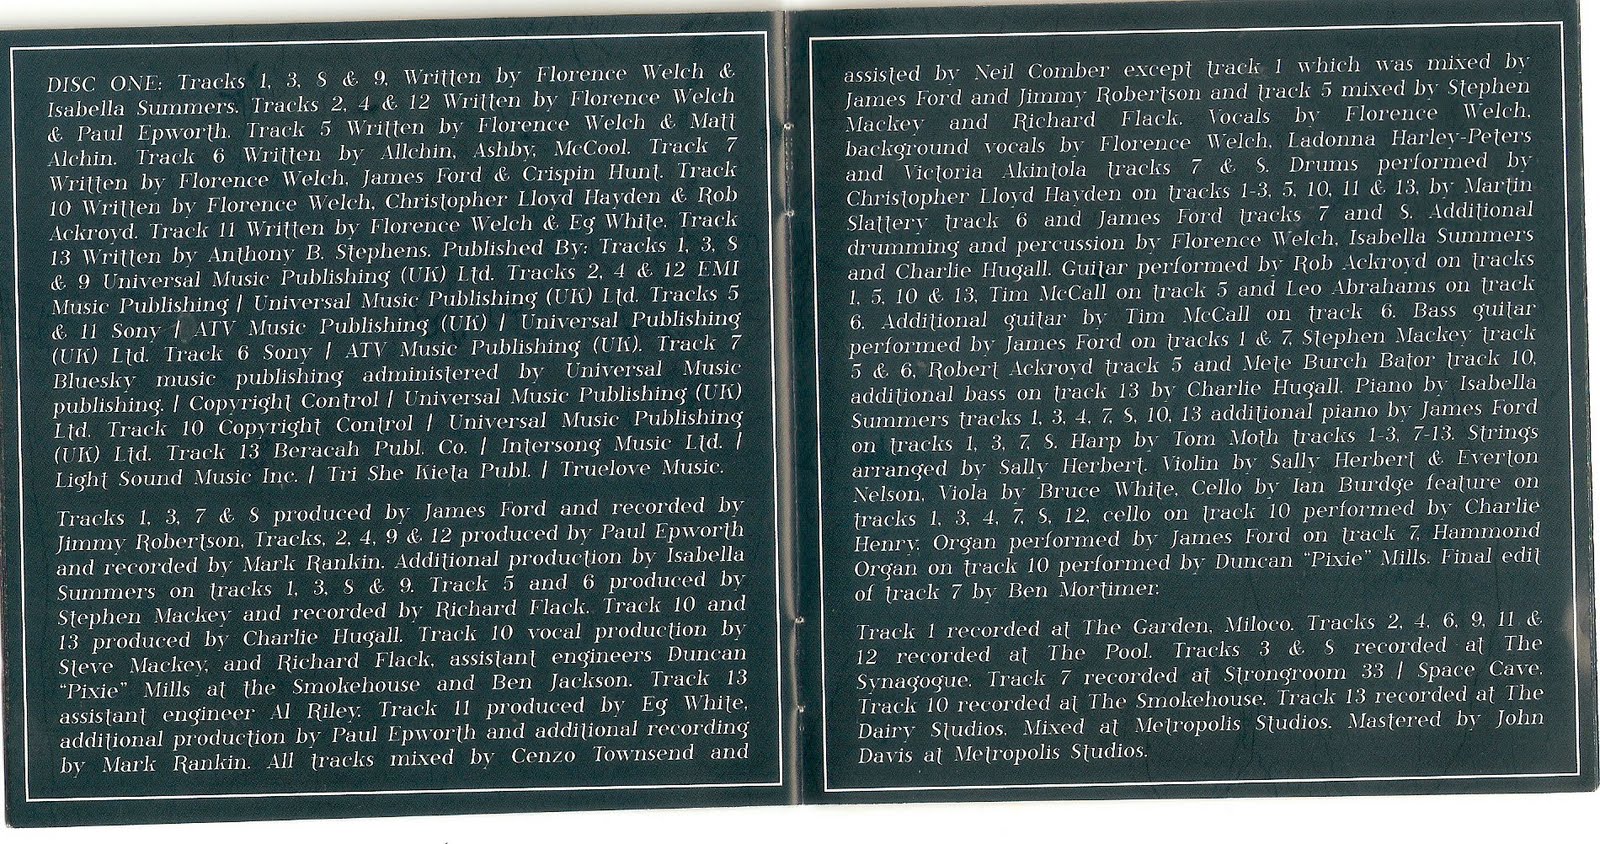 DISC ONE: Tracks 1, 3, 8 & 9, Written by Florence Welch &
Isabella Summers. Tracks 2, 4 & 12 Written by Florence Welch
& Paul Epworth. Track 5 Written by Florence Welch & Matt
Alchin. Track 6 Written by Allchin, Ashby, McCool. Track 7
Written by Florence Welch, James Ford & Crispin Hunt. Track
10 Written by Florence Welch, Christopher Lloyd Hayden & Rob
Ackroyd. Track 11 Written by Florence Welch & Eg White. Track
13 Written by Anthony B. Stephens. Published By: Tracks 1, 3, 8
& 9 Universal Music Publishing (UK) Ltd. Tracks 2, 4 & 12 EMI
Music Publishing / Universal Music Publishing (UK) Ltd. Tracks 5
& 11 Sony / ATV Music Publishing (UK) / Universal Publishing
(UK) Ltd. Track 6 Sony / ATV Music Publishing (UK). Track 7
Bluesky music publishing administered by Universal Music
publishing. / Copyright Control / Universal Music Publishing (UK)
Ltd. Track 10 Copyright Control / Universal Music Publishing
(UK) Ltd. Track 13 Beracah Publ. Co. / Intersong Music Ltd. /
Light Sound Music Inc. / Tri She Kieta Publ. / Truelove Music.
Tracks 1, 3, 7 & 8 produced by James Ford and recorded by
Jimmy Robertson, Tracks, 2, 4, 9 & 12 produced by Paul Epworth
and recorded by Mark Rankin. Additional production by Isabella
Summers on tracks 1, 3, 8 & 9. Track 5 and 6 produced by
Stephen Mackey and recorded by Richard Flack. Track 10 and
13 produced by Charlie Hugall. Track 10 vocal production by
Steve Mackey, and Richard Flack, assistant engineers Duncan
"Pixie" Mills at the Smokehouse and Ben Jackson. Track 13
assistant engineer Al Riley. Track 11 produced by Eg White,
additional production by Paul Epworth and additional recording
by Mark Rankin. All tracks mixed by Cenzo Townsend and
assisted by Neil Comber except track 1 which was mixed by
James Ford and Jimmy Robertson and track 5 mixed by Stephen
Mackey and Richard Flack. Vocals by Florence Welch,
background vocals by Florence Welch, Ladonna Harley-Peters
and Victoria Akintola tracks 7 & 8. Drums performed by
Christopher Lloyd Hayden on tracks 1-3, 5, 10, 11 & 13, by Martin
Slattery track 6 and James Ford tracks 7 and 8. Additional
drumming and percussion by Florence Welch, Isabella Summers
and Charlie Hugall. Guitar performed by Rob Ackroyd on tracks
1, 5, 10 & 13, Tim McCall on track 5 and Leo Abrahams on track
6. Additional guitar by Tim McCall on track 6. Bass guitar
performed by James Ford on tracks 1 & 7, Stephen Mackey track
5 & 6, Robert Ackroyd track 5 and Mete Burch Bator track 10,
additional bass on track 13 by Charlie Hugall. Piano by Isabella
Summers tracks 1, 3, 4, 7, 8, 10, 13 additional piano by James Ford
on tracks 1, 3, 7, 8. Harp by Tom Moth tracks 1-3, 7-13. Strings
arranged by Sally Herbert. Violin by Sally Herbert & Everton
Nelson, Viola by Bruce White, Cello by Ian Burdge feature on
tracks 1, 3, 4, 7, 8, 12, cello on track 10 performed by Charlie
Henry. Organ performed by James Ford on track 7, Hammond
Organ on track 10 performed by Duncan "Pixie" Mills. Final edit
of track 7 by Ben Mortimer:
Track 1 recorded at The Garden, Miloco. Tracks 2, 4, 6, 9, 11 &
12 recorded at The Pool. Tracks 3 & 8 recorded at The
Synagogue. Track 7 recorded at Strongroom 33 / Space Cave.
Track 10 recorded at The Smokehouse. Track 13 recorded at The
Dairy Studios. Mixed at Metropolis Studios. Mastered by John
Davis at Metropolis Studios.